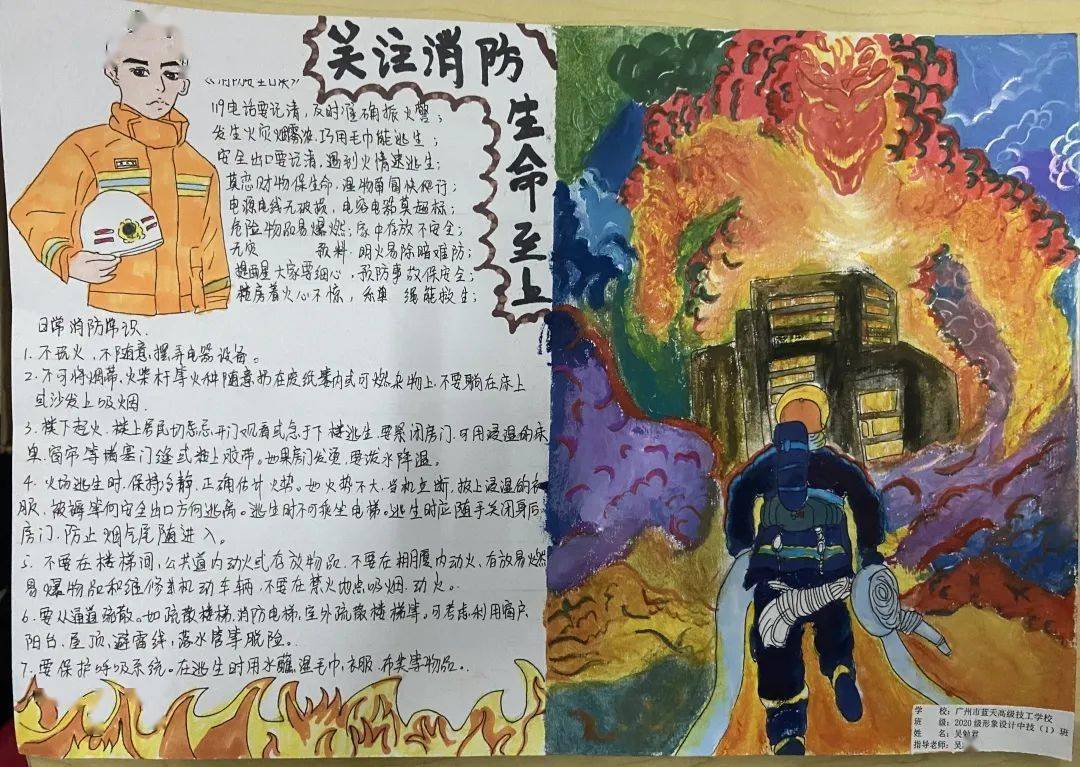 关注消防
生命至上
119电话要记清,及时准确报火警;
发生火灾烟雾浓,巧用毛巾能逃生;
安全出口要记清,遇到火情速逃生;
莫恋财物保生命,湿物
电源电线无破损,电容电器莫超标;
危险物品易爆燃,家中存放不安全;
无
料,明火易除暗难防;
大家要细心,预防事故保安全;
着火心不惊,
绳能救生;
日常消防常识.
1.不玩火,不随意摆弄电器设备。
2.不可将烟蒂,火柴杆等火种随意扔在废纸篓内或可燃杂物上,不要躺在床上
或沙发上吸烟.
3.楼下起火,楼上居民切忌开门观看或急于下楼逃生,要紧闭房门,可用浸湿的床
单,窗帘等堵塞门缝或粘上胶带。如果房门发烫,要泼水降温。
4.火场逃生时,保持冷静,正确估计火势。如火势不大,当机立断,披上浸湿的衣
服,被褥等向安全出口方向逃离。逃生时不可乘坐电梯。逃生时应随手关闭身后
房门,防止烟气尾随进入。
5.不要在楼梯间,公共道内动火或存放物品,不要在棚厦内动火,存放易燃
易爆物品和维修机动车辆,不要在禁火地点吸烟.动火。
6.要从通道疏散。如疏散楼梯,消防电梯,室外疏散楼梯等。可考虑利用窗户,
阳台,屋顶,避雷线,落水管等脱险。
7.要保护呼吸系统。在逃生时用水蘸湿毛巾,衣服,布类等物品。
学 校:广州市蓝天高级技工学校
班 级:2020级形象设计中技(1)班
姓 名:吴勉君
指导老师:吴